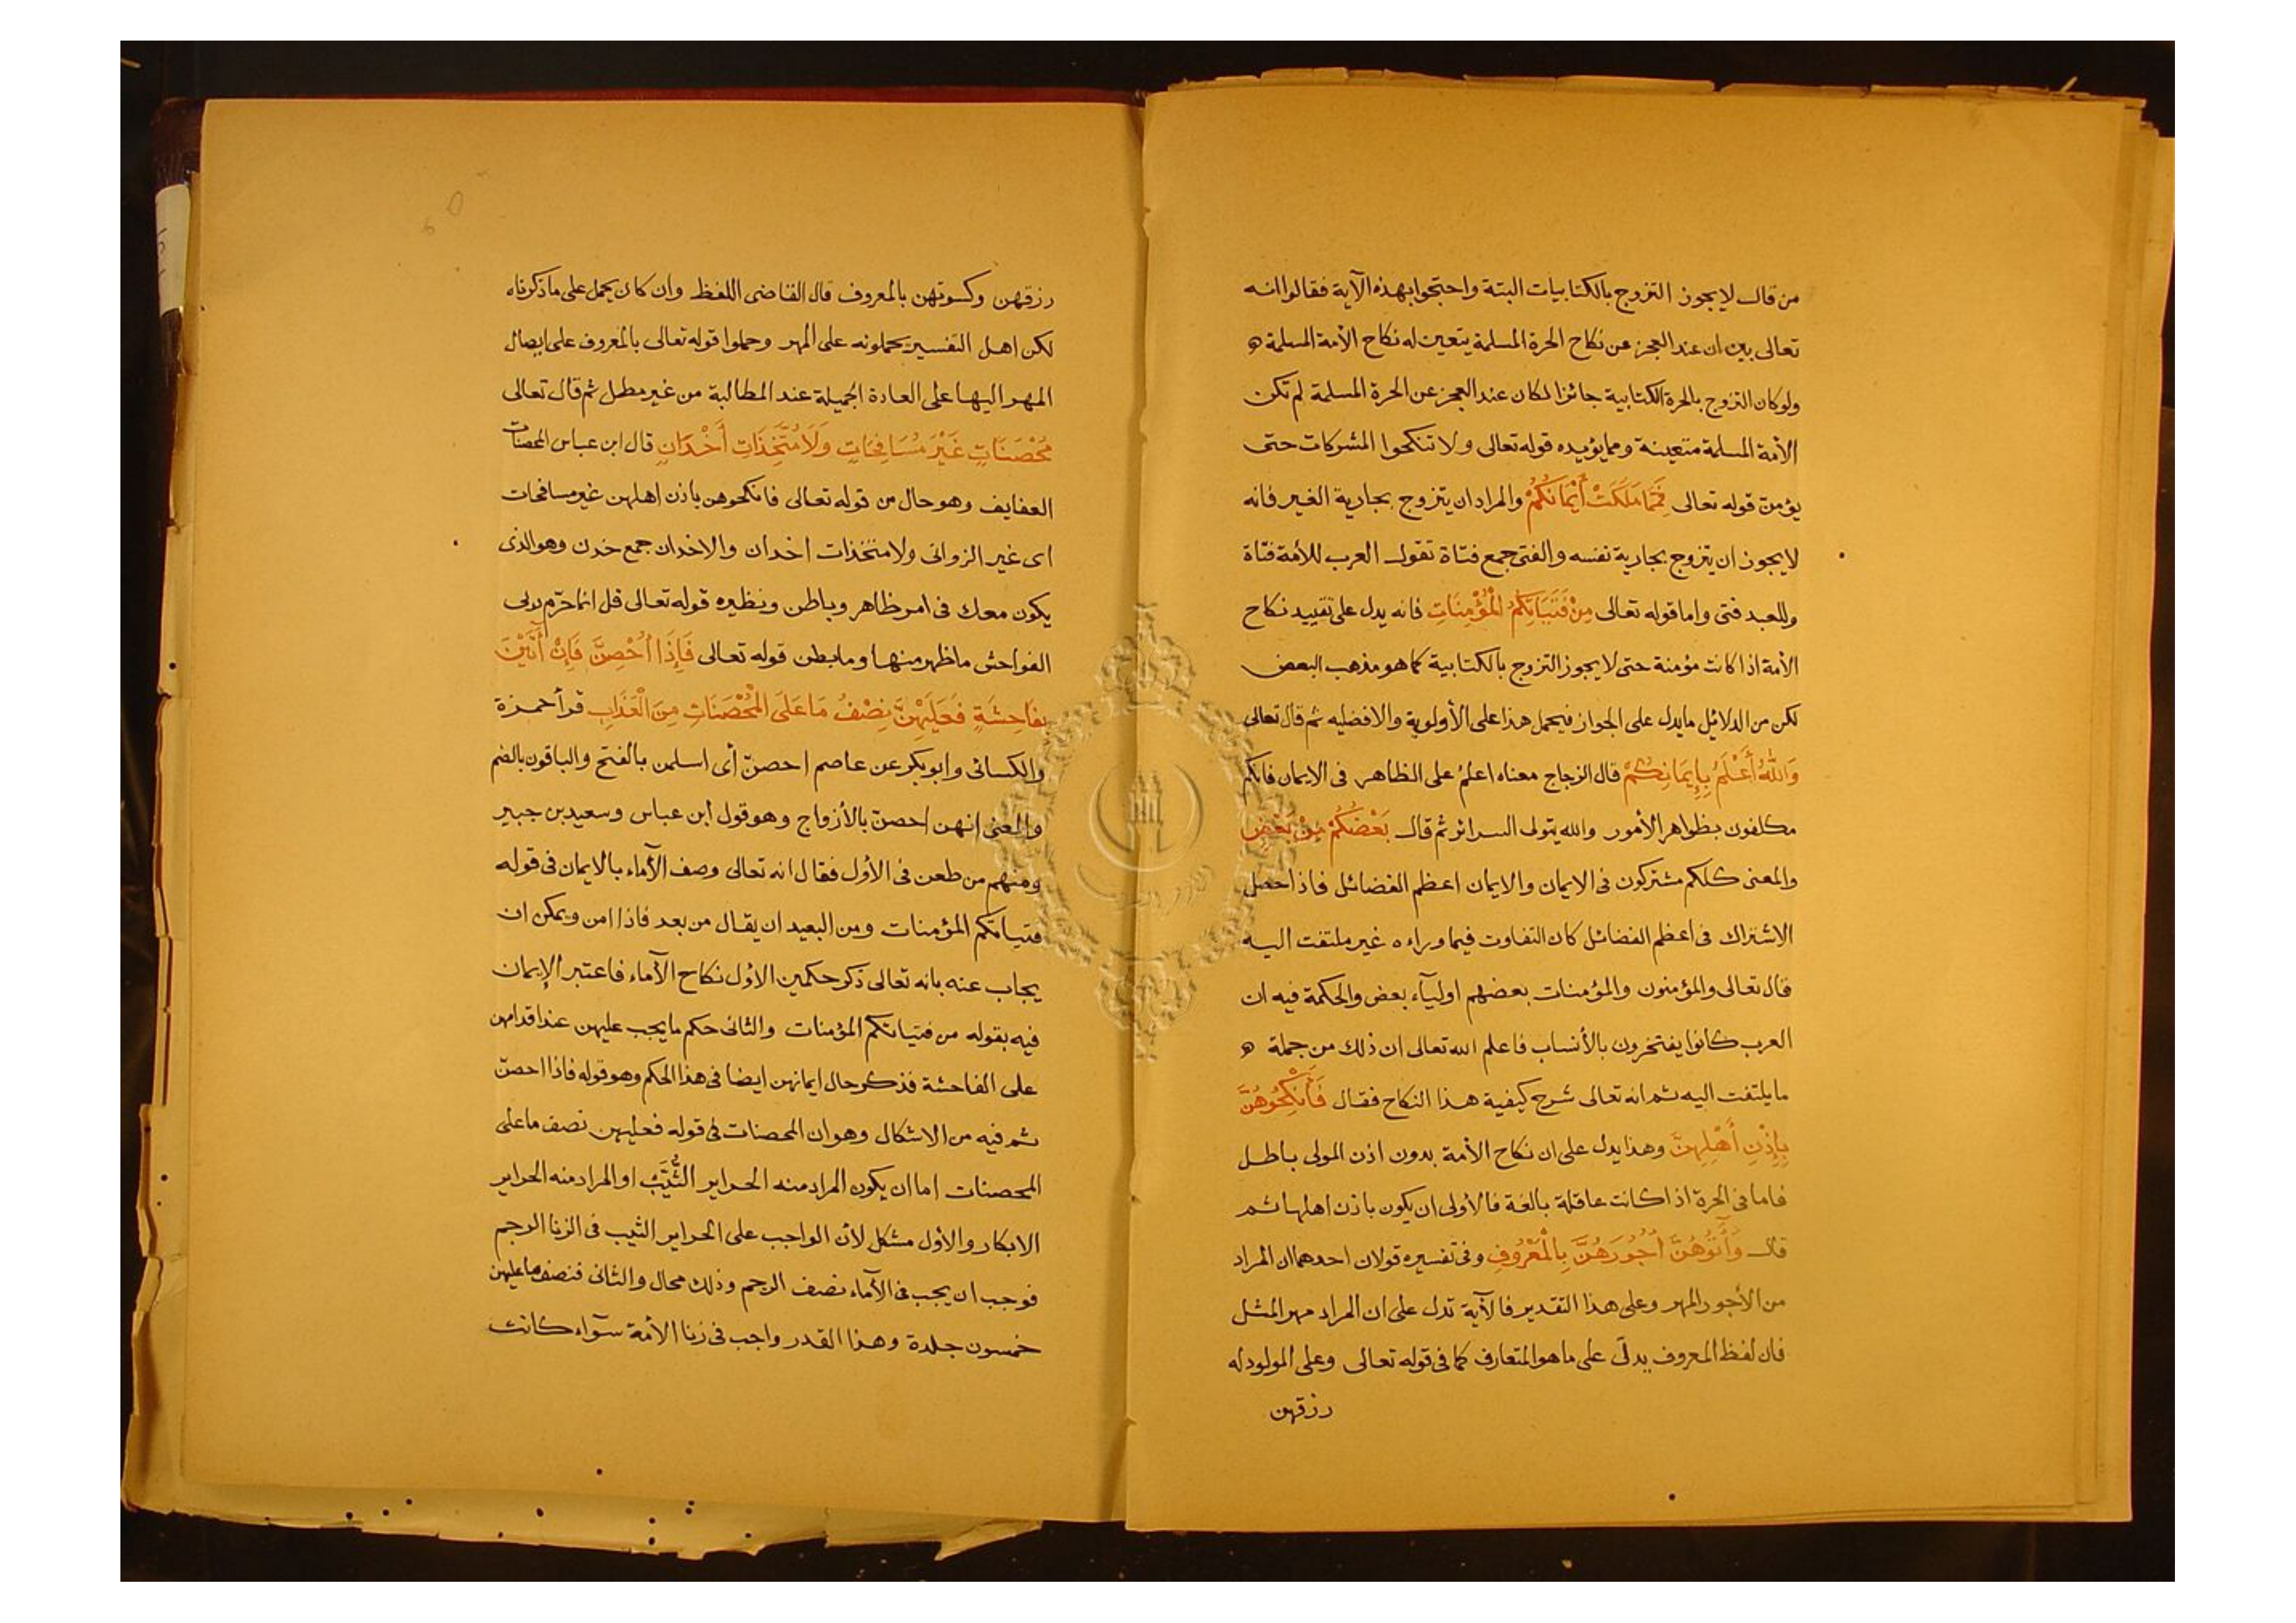 من قال لا يجوز التزوج بالكتابيات البتة واحتجوا بهذه الآية فقالوا انه
تعالى بين ان عند العجز عن نكاح الحرة المسلمة يتعين له نكاح الأمة المسلمة
ولو كان التزوج بالحرة الكتابية جائزا لكان عند العجز عن الحرة المسلمة لم تكن
الأمة المسلمة متعينة ومما يؤيده قوله تعالى ولا تنكحوا المشركات حتى
يؤمن قوله تعالى فَمِمَّا مَلَكَتْ أَيْمَانُكُمْ والمراد ان يتزوج بجارية الغير فانه
لا يجوز ان يتزوج بجارية نفسه والفتى جمع فتاة تقول العرب للأمة فتاة
وللعبد فتى واما قوله تعالى مِنْ فَتَيَاتِكُمُ الْمُؤْمِنَاتِ فانه يدل على تقييد نكاح
الأمة اذا كانت مؤمنة حتى لا يجوز التزوج بالكتابية كما هو مذهب البعض
لكن من الدلائل ما يدل على الجواز فيحمل هذا على الأولوية والافضليه ثم قال تعالى
وَاللَّهُ أَعْلَمُ بِإِيمَانِكُمْ قال الزجاج معناه اعلم على الظاهر فى الايمان فانكم
مكلفون بظواهر الأمور والله يتولى السرائر ثم قال بَعْضُكُمْ مِنْ بَعْضٍ
والمعنى كلكم مشتركون فى الايمان والايمان اعظم الفضائل فاذا حصل
الاشتراك فى أعظم الفضائل كان التفاوت فيما وراءه غير ملتفت اليه
قال تعالى والمؤمنون والمؤمنات بعضهم اوليآء بعض والحكمة فيه ان
العرب كانوا يفتخرون بالأنساب فاعلم الله تعالى ان ذلك من جملة
ما يلتفت اليه ثم انه تعالى شرح كيفية هذا النكاح فقال فَانْكِحُوهُنَّ
بِإِذْنِ أَهْلِهِنَّ وهذا يدل على ان نكاح الأمة بدون اذن المولى باطل
فاما فى الحرة اذا كانت عاقلة بالغة فالأولى ان يكون باذن اهلها ثم
قال وَآتُوهُنَّ أُجُورَهُنَّ بِالْمَعْرُوفِ وفى تفسيره قولان احدهما ان المراد
من الأجور المهر وعلى هذا التقدير فالآية تدل على ان المراد مهر المثل
فان لفظ المعروف يدلّ على ما هو المتعارف كما فى قوله تعالى وعلى المولود له
رزقهن
رزقهن وكسوتهن بالمعروف قال القاضى اللفظ وان كان يحمل على ما ذكرناه
لكن اهل التفسير يحملونه على المهر وحملوا قوله تعالى بالمعروف على ايصال
المهر اليها على العادة الجميلة عند المطالبة من غير مطل ثم قال تعالى
مُحْصَنَاتٍ غَيْرَ مُسَافِحَاتٍ وَلَا مُتَّخِذَاتِ أَخْدَانٍ قال ابن عباس المحصنات
العفايف وهو حال من قوله تعالى فانكحوهن باذن اهلهن غير مسافحات
اى غير الزوانى ولا متخذات اخدان والاخدان جمع خدن وهو الذى
يكون معك فى امر ظاهر وباطن ونظيره قوله تعالى قل انما حرّم ربى
الفواحش ما ظهر منها وما بطن قوله تعالى فَإِذَا أُحْصِنَّ فَإِنْ أَتَيْنَ
بِفَاحِشَةٍ فَعَلَيْهِنَّ نِصْفُ مَا عَلَى الْمُحْصَنَاتِ مِنَ الْعَذَابِ قرأ حمزة
والكسائى وابو بكر عن عاصم احصنّ أى اسلمن بالفتح والباقون بالضم
والمعنى انهن احصنّ بالأزواج وهو قول ابن عباس وسعيد بن جبير
ومنهم من طعن فى الأول فقال انه تعالى وصف الآماء بالايمان فى قوله
فتياتكم المؤمنات ومن البعيد ان يقال من بعد فاذا امن ويمكن ان
يجاب عنه بانه تعالى ذكر حكمين الأول نكاح الآماء فاعتبر الإيمان
فيه بقوله من فتياتكم المؤمنات والثانى حكم ما يجب عليهن عند اقدامهن
على الفاحشة فذكر حال ايمانهن ايضا فى هذا الحكم وهو قوله فاذا احصنّ
ثم فيه من الاشكال وهو ان المحصنات فى قوله فعليهن نصف ما على
المحصنات اما ان يكون المراد منه الحراير الثُّيَّب او المراد منه الحراير
الابكار والأول مشكل لأن الواجب على الحراير الثيب فى الزنا الرجم
فوجب ان يجب فى الآماء نصف الرجم وذلك محال والثانى فنصف ما عليهن
خمسون جلدة وهذا القدر واجب فى زنا الأمة سوآء كانت